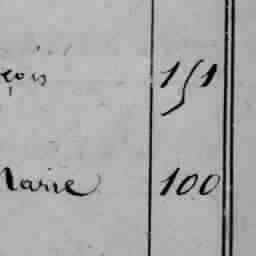 çois 151
Marie 100